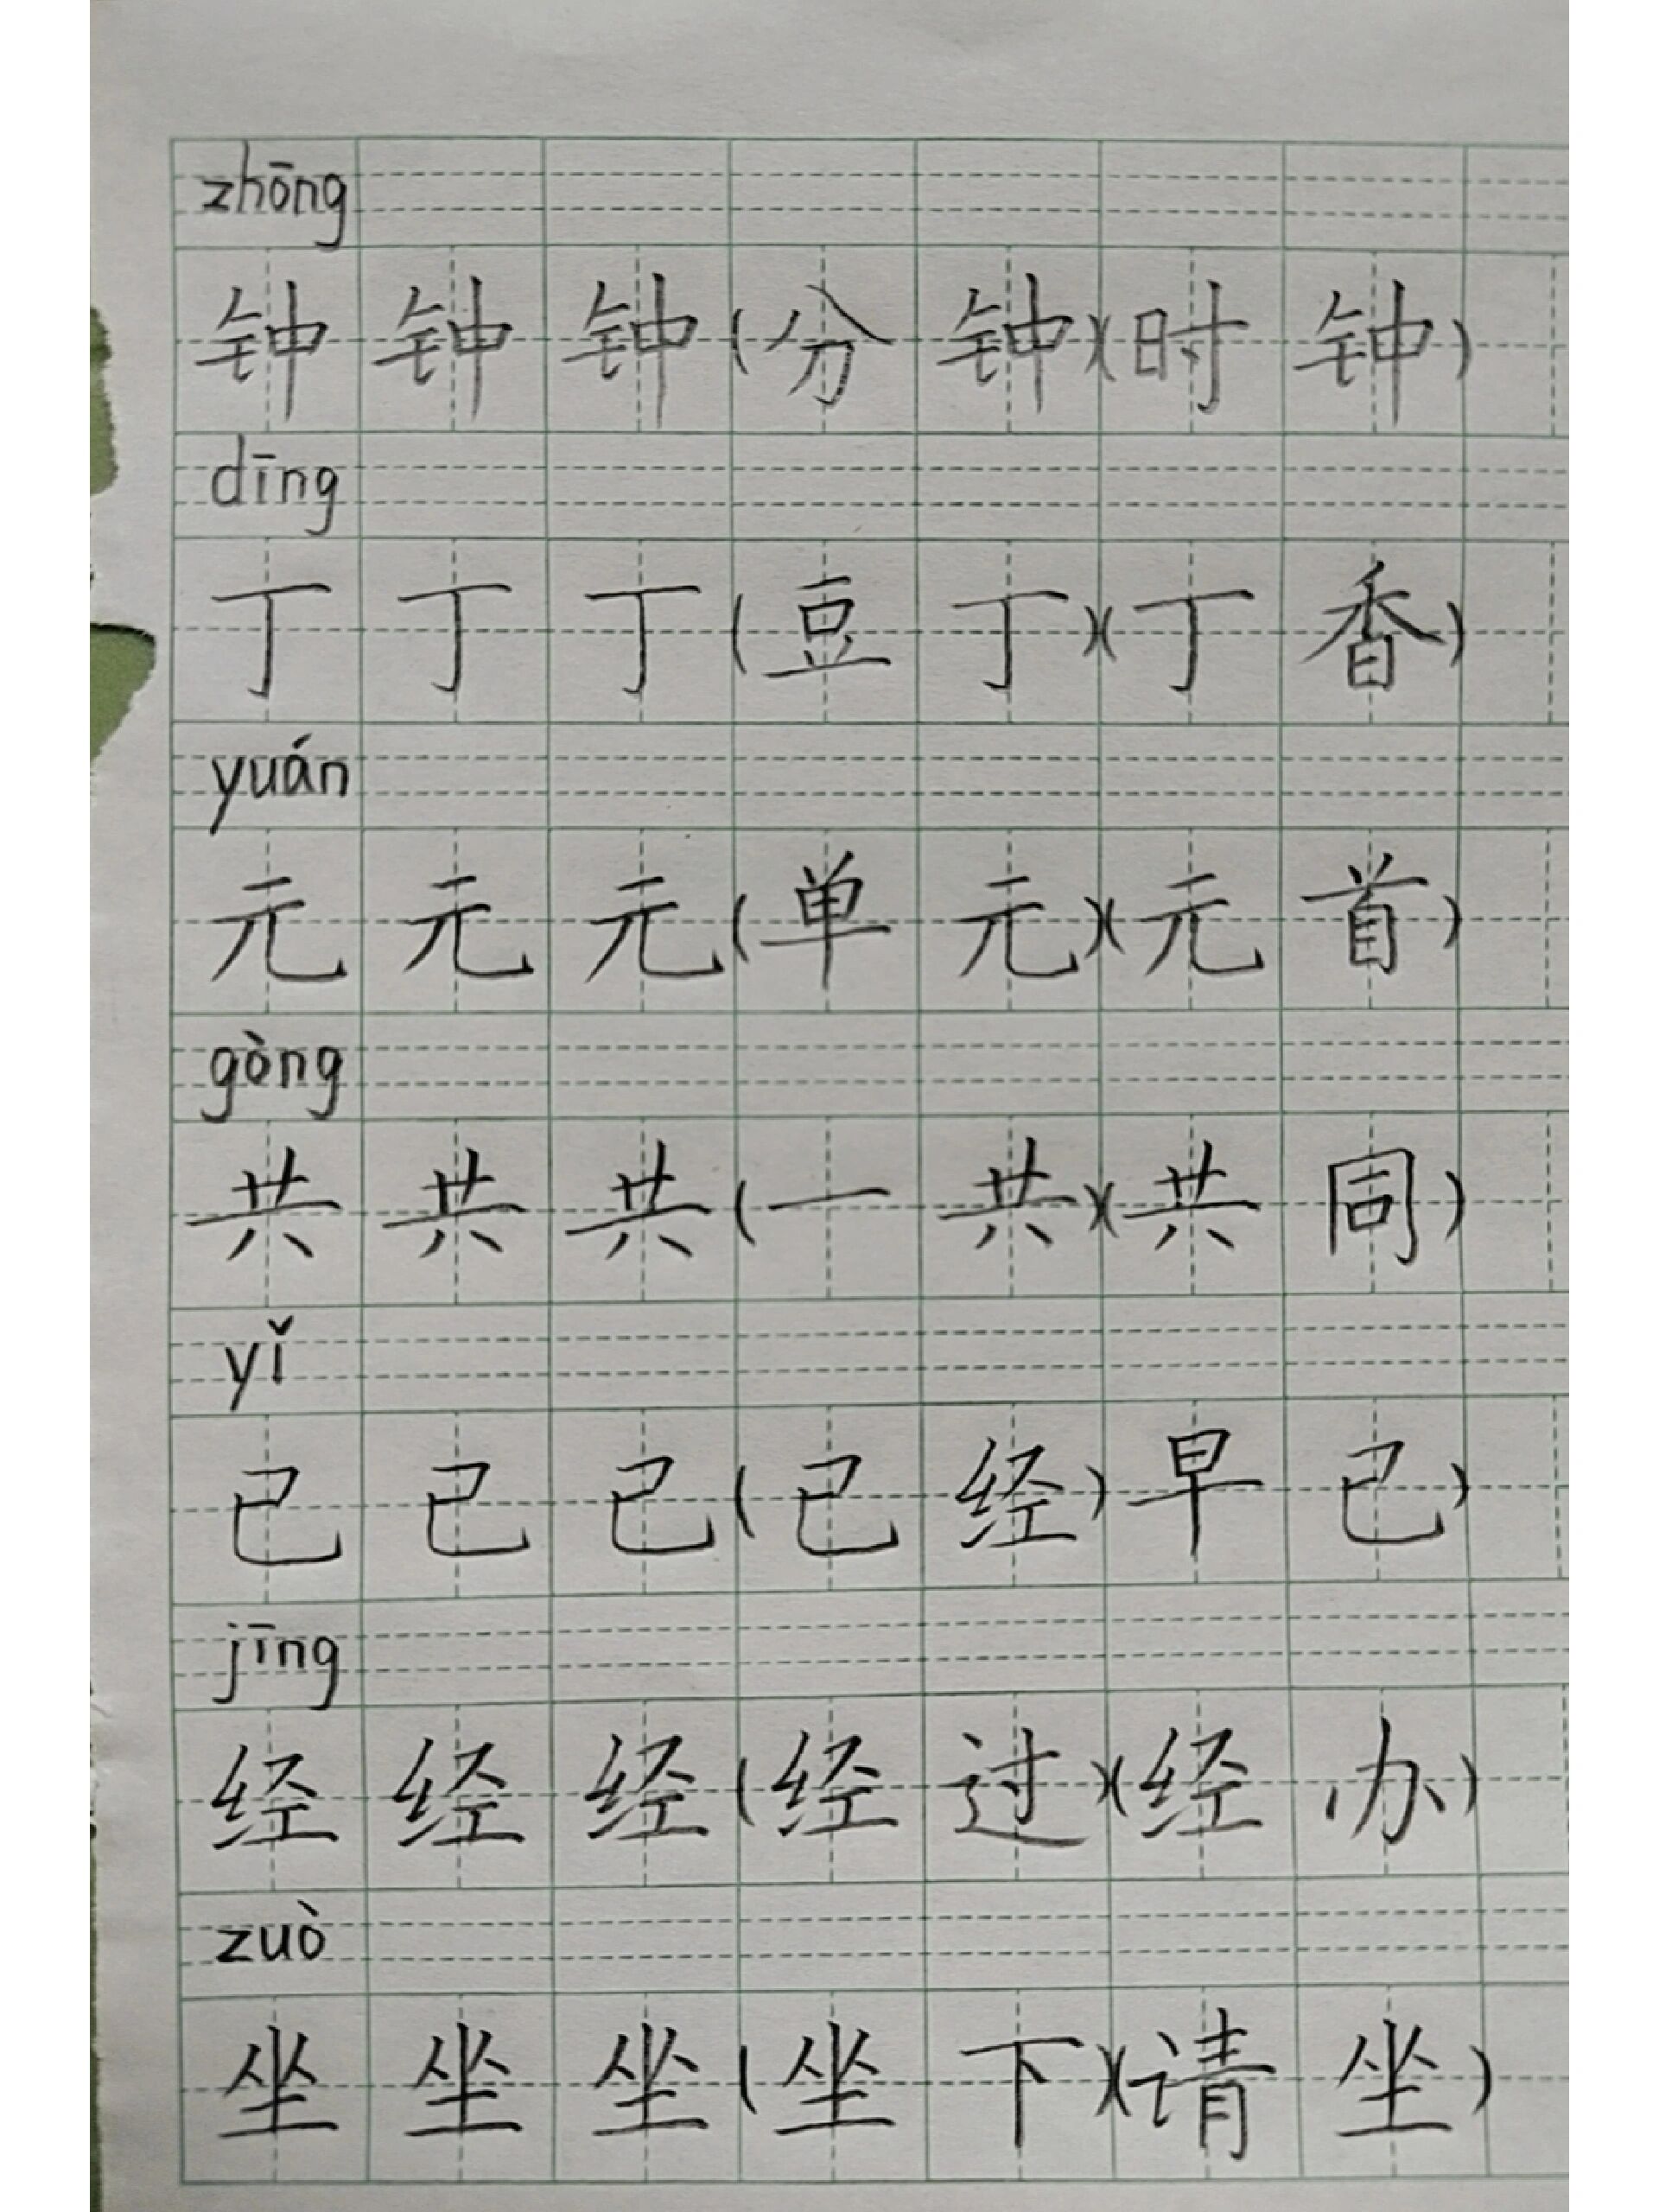 zhōng
钟钟钟(分钟)(时钟)
dīng
丁丁丁(豆丁)(丁香)
yuán
元元元(单元)(元首)
gòng
共共共(一共)(共同)
yǐ
已已已(已经)早已)
jīng
经经经(经过)(经办)
zuò
坐坐坐(坐下)(请坐)